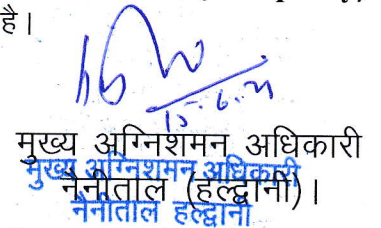 है।
15.6.21
मुख्य अग्निशमन अधिकारी
मुख्य अग्निशमन अधिकारी
नैनीताल (हल्द्वानी)।
नैनीताल हल्द्वानी